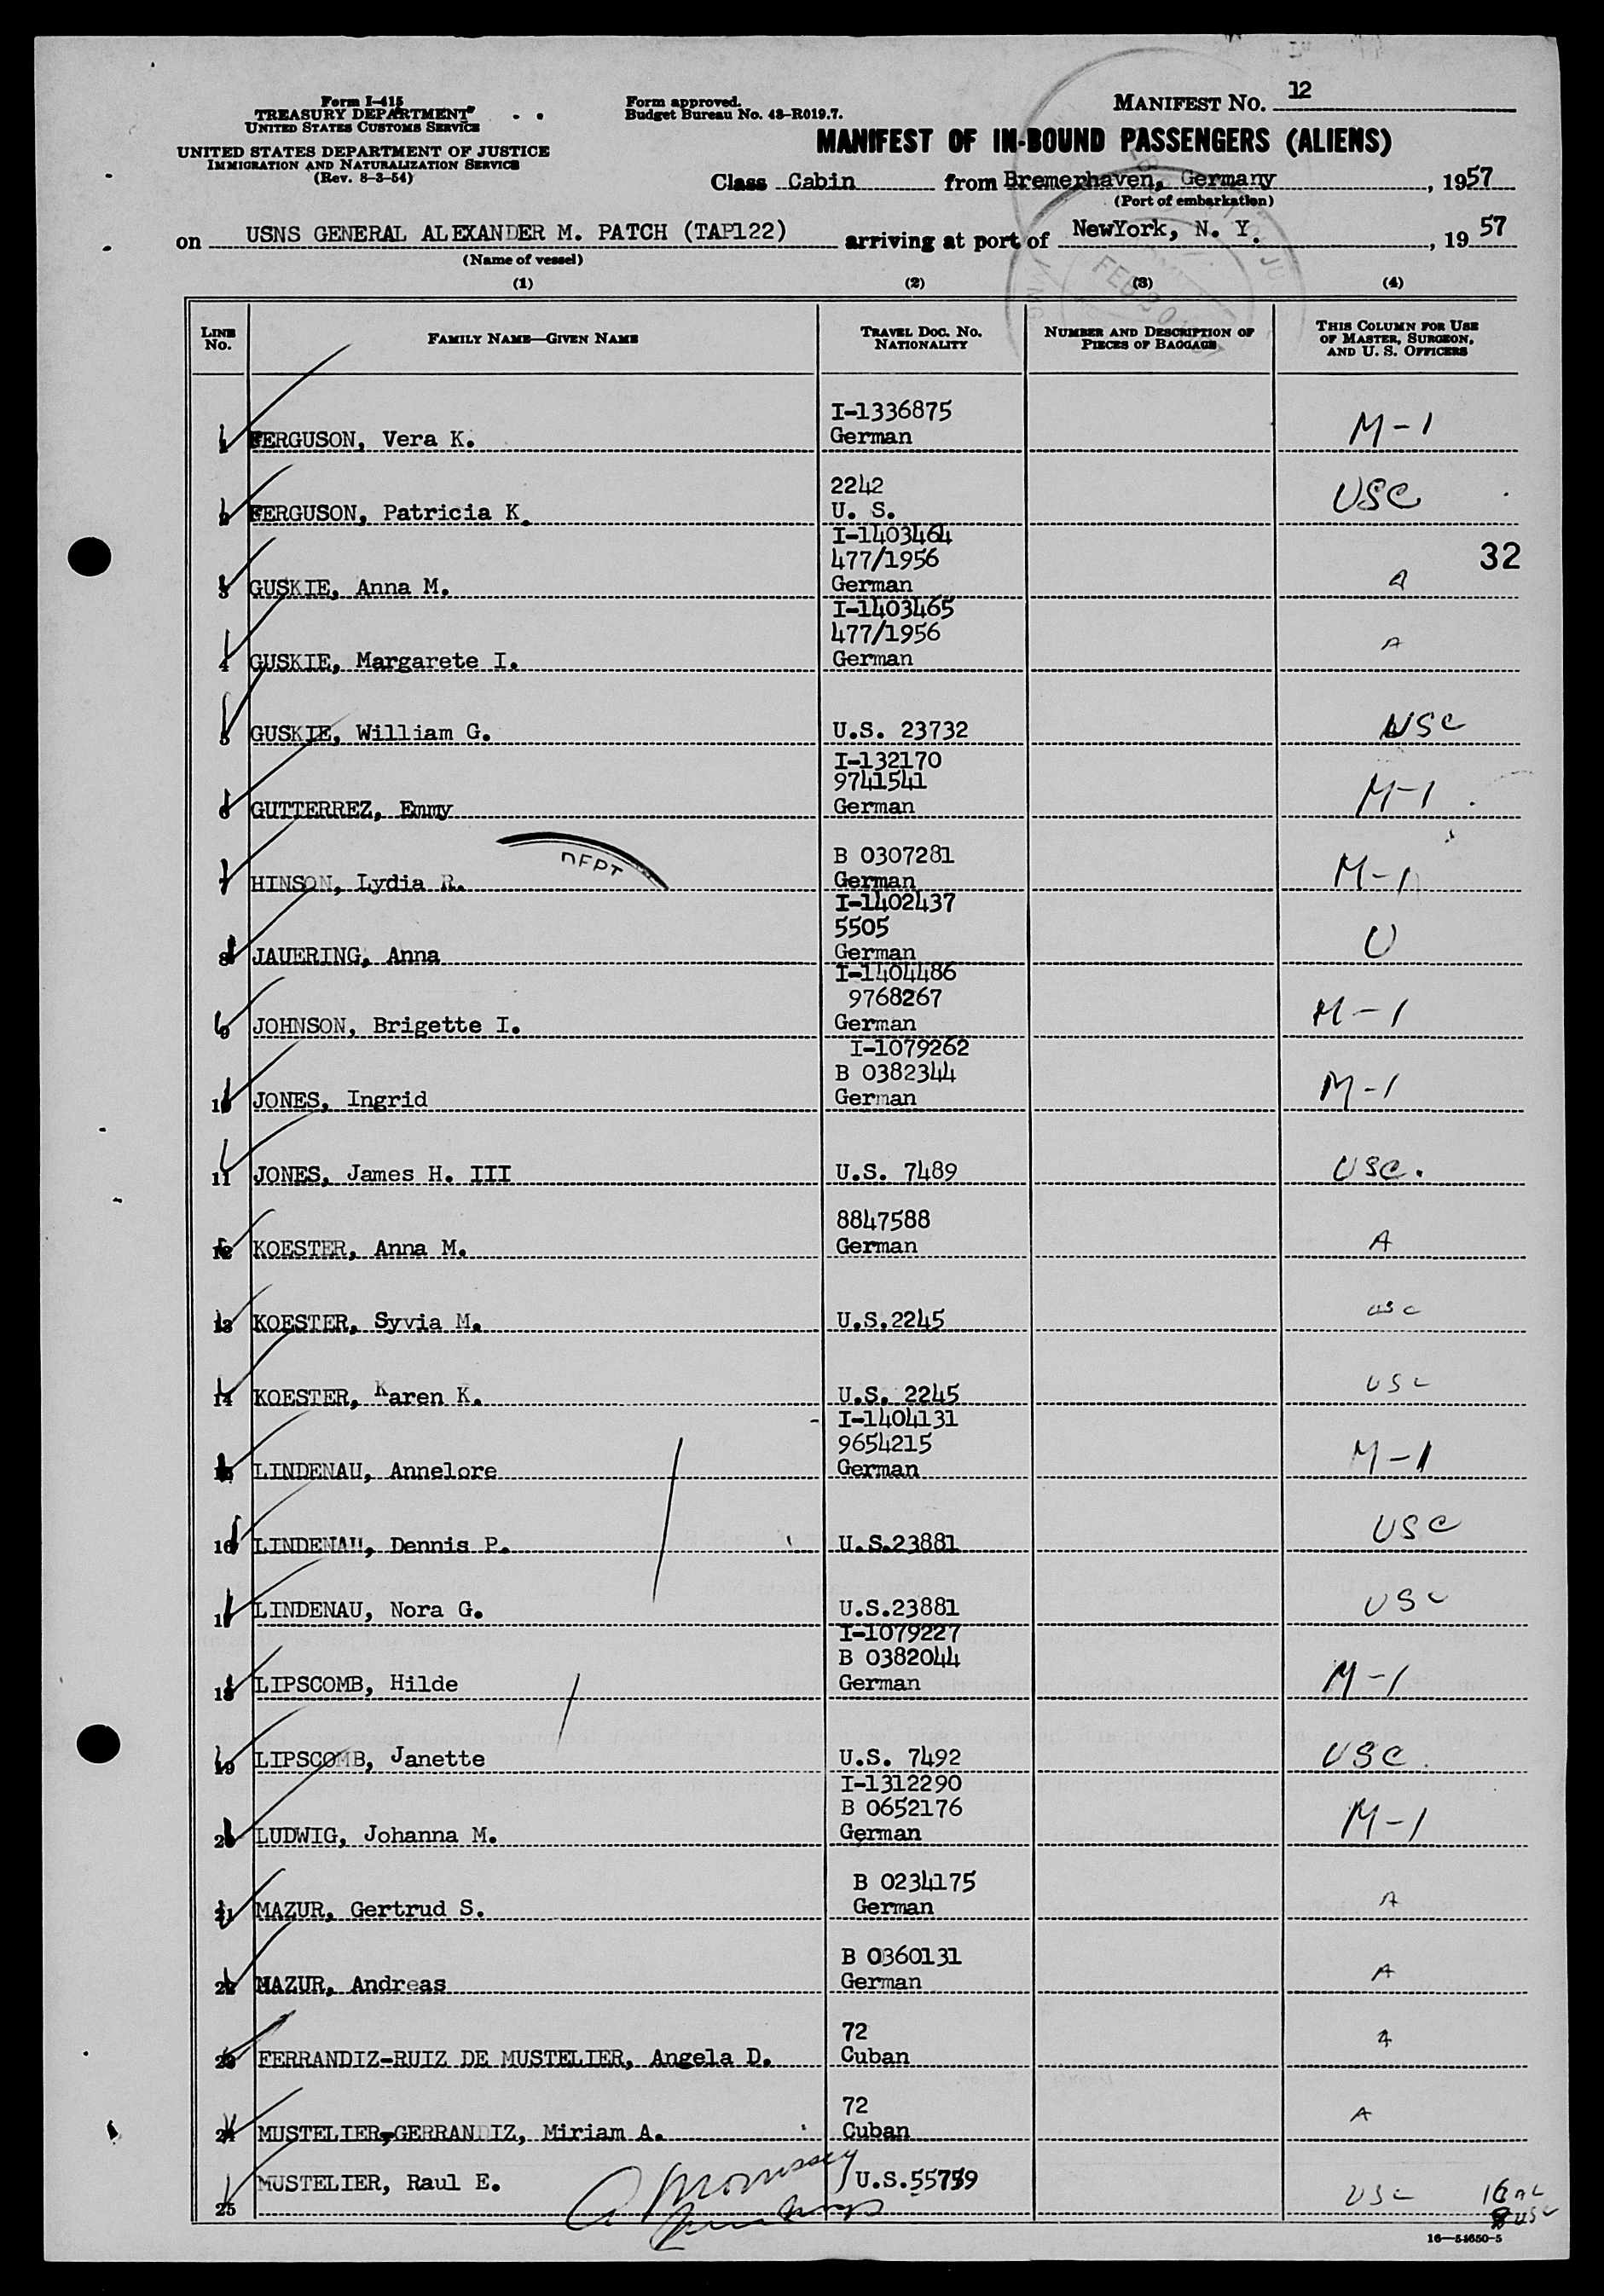 Form I-415
TREASURY DEPARTMENT
UNITED STATES CUSTOMS SERVICE
UNITED STATES DEPARTMENT OF JUSTICE
IMMIGRATION AND NATURALIZATION SERVICE
(Rev. 8-3-54)
Form approved.
Budget Bureau No. 43-R019.7.
MANIFEST NO. 12
MANIFEST OF IN-BOUND PASSENGERS (ALIENS)
Class Cabin from Bremerhaven, Germany, 1957
(Port of embarkation)
on USNS GENERAL ALEXANDER M. PATCH (TAP122) arriving at port of NewYork, N. Y., 19 57
(Name of vessel)
(1) (2) (3) (4)
LINE No. FAMILY NAME—GIVEN NAME TRAVEL DOC. NO. NATIONALITY NUMBER AND DESCRIPTION OF PIECES OF BAGGAGE THIS COLUMN FOR USE OF MASTER, SURGEON, AND U. S. OFFICERS
I-1336875
1 FERGUSON, Vera K. German M-1
2242
2 FERGUSON, Patricia K. U. S. USC
I-1403464
477/1956 32
3 GUSKIE, Anna M. German A
I-1403465
477/1956
4 GUSKIE, Margarete I. German A
5 GUSKIE, William G. U.S. 23732 USC
I-132170
9741541
6 GUTTERREZ, Emmy German M-1
DEPT
B 0307281
7 HINSON, Lydia R. German M-1
I-1402437
5505
8 JAUERING, Anna German U
I-1404486
9768267
9 JOHNSON, Brigette I. German M-1
I-1079262
B 0382344
10 JONES, Ingrid German M-1
11 JONES, James H. III U.S. 7489 USC.
8847588
12 KOESTER, Anna M. German A
13 KOESTER, Syvia M. U.S.2245 USC
14 KOESTER, Karen K. U.S. 2245 USC
I-1404131
9654215
15 LINDENAU, Annelore German M-1
16 LINDENAU, Dennis P. U.S.23881 USC
17 LINDENAU, Nora G. U.S.23881 USC
I-1079227
B 0382044
18 LIPSCOMB, Hilde German M-1
19 LIPSCOMB, Janette U.S. 7492 USC.
I-1312290
B 0652176
20 LUDWIG, Johanna M. German M-1
B 0234175
21 MAZUR, Gertrud S. German A
B 0360131
22 MAZUR, Andreas German A
72
23 FERRANDIZ-RUIZ DE MUSTELIER, Angela D. Cuban A
72
24 MUSTELIER-GERRANDIZ, Miriam A. Cuban A
25 MUSTELIER, Raul E. U.S.55759 USC
16—54650-5